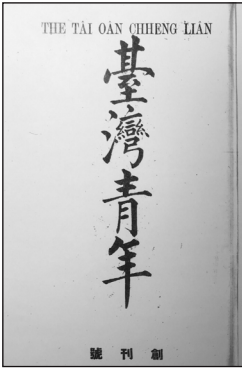 THE TÂI OÂN CHHENG LIÂN
臺灣青年
號刊創